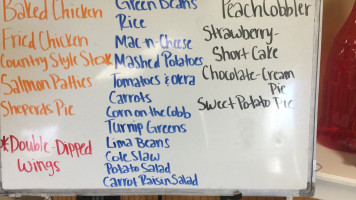 Baked Chicken
Fried Chicken
Country Style Steak
Salmon Patties
Sheperds Pie
*Double-Dipped
Wings
Green Beans
Rice
Mac-n-Cheese
Mashed Potatoes
Tomatoes & okra
Carrots
Corn on the Cobb
Turnip Greens
Lima Beans
Cole Slaw
Potato Salad
Carrot Raisin Salad
Peach Cobbler
Strawberry-
Short Cake
Chocolate-Cream
Pie
Sweet Potato Pie